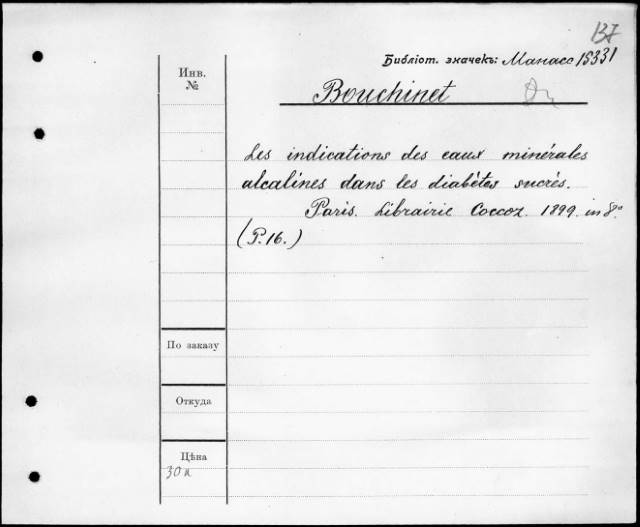 137
Библіот. значекъ: Манасс 15331
Инв.
№
Bouchinet
Les indications des eaux minérales
alcalines dans les diabètes sucrés.
Paris. Librairie Coccoz. 1899. in 8°
(P. 16.)
По заказу
Откуда
Цѣна
30 к